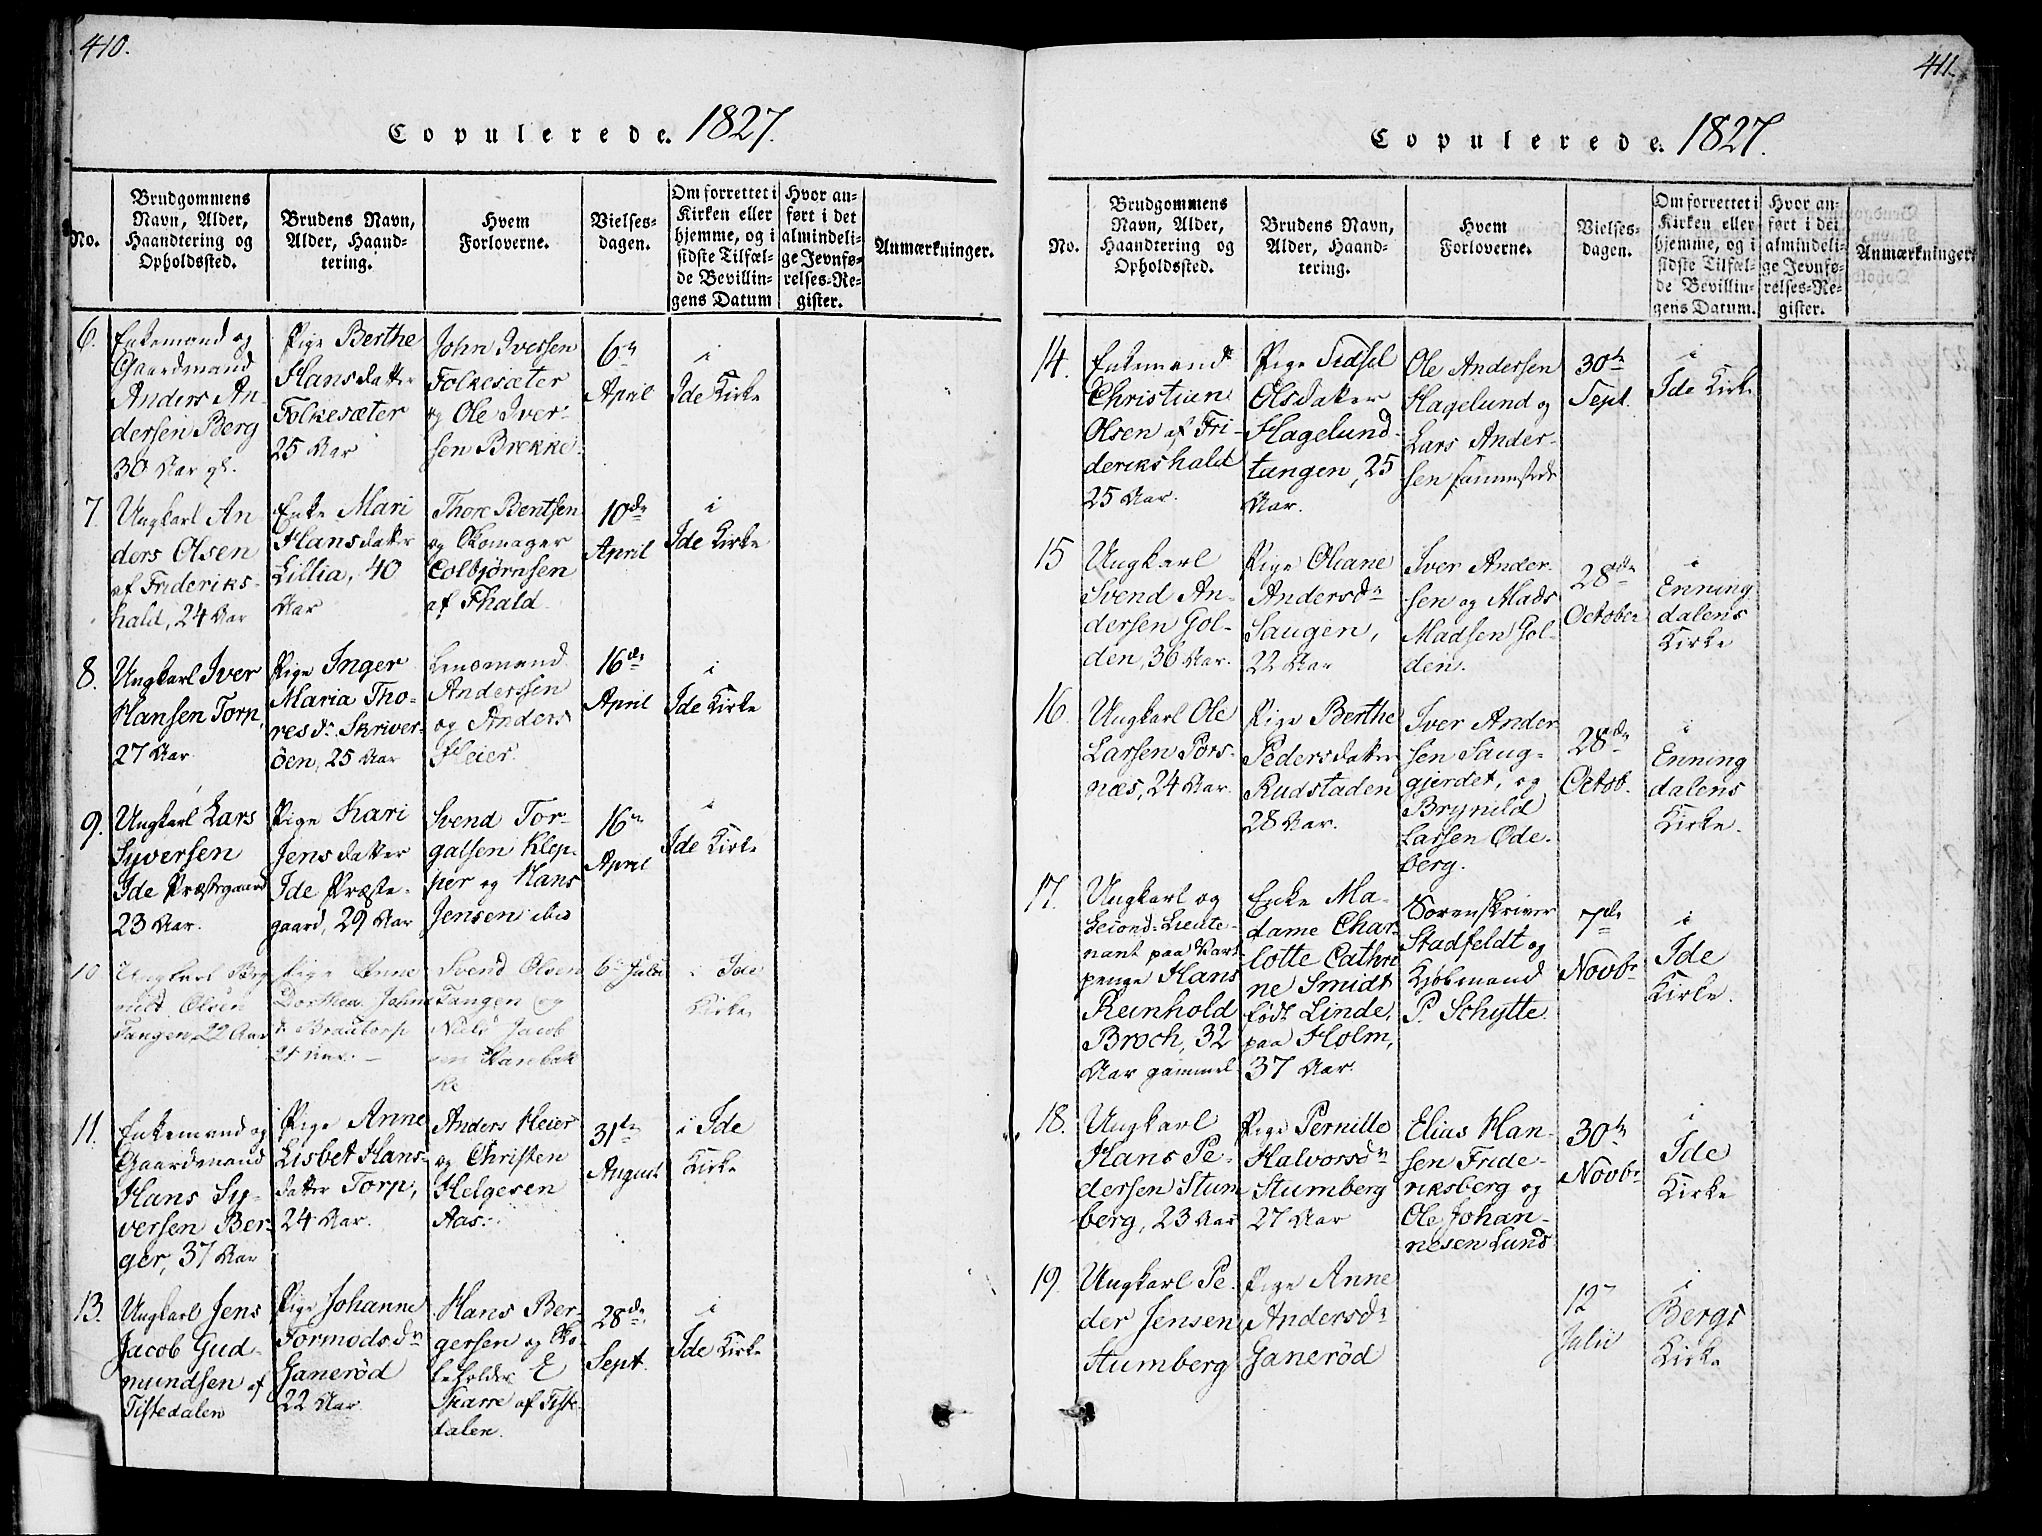 410.
Copulerede. 1827.
No.
Brudgommens
Navn, Alder,
Haandtering og
Opholdssted.
Brudens Navn,
Alder, Haand-
tering.
Hvem
Forloverne.
Vielses-
dagen.
Om forrettet i
Kirken eller
hjemme, og i
sidste Tilfæl-
de Bevillin-
gens Datum
Hvor an-
ført i det
almindeli-
ge Jevnfø-
relses-Re-
gister.
Anmærkninger.
6.
Enkemand og
Gaardmand
Anders An-
dersen Berg
30 Aar gl.
Pige Berthe
Hansdatter
Folkesæter
25 Aar
John Iversen
Folkesæter
og Ole Iver-
sen Brekke.
6te
April
i
Ide Kirke
7.
Ungkarl An-
ders Olsen
af Frideriks-
hald, 24 Aar
Enke Mari
Hansdatter
Lillia, 40
Aar
Thore Bentsen
og Skomager
Colbjørnsen
af Fhald.
10de
April
i
Ide Kirke
8.
Ungkarl Iver
Hansen Torp,
27 Aar
Pige Inger
Maria Tho-
resdr. Skriver-
öen, 25 Aar
Lensmand
Anderssen
og Anders
Heier.
16de
April
i
Ide Kirke
9.
Ungkarl Lars
Syversen
Ide Præstegaard
23 Aar.
Pige Kari
Jensdatter
Ide Præste-
gaard, 29 Aar
Svend Tor-
galsen Klep-
per og Hans
Jensen ibid
16de
April
i
Ide Kirke
10
Ungkarl Bry
nild Olsen
Tangen 22 Aar
Pige Anne
Dorthea Johns
dr Brautorp
21 Aar. —
Svend Olsen
Tangen og
Niels Jacob
sen
6te Julii
i Ide
Kirke
11.
Enkemand og
Gaardmand
Hans Sy-
versen Ber-
ger, 37 Aar
Pige Anne
Lisbet Hans-
datter Torp,
24 Aar.
Anders Heier
og Christen
Helgesen
Aas.
31te
August
i Ide
Kirke
13.
Ungkarl Jens
Jacob Gud-
mundsen af
Tistedalen
Pige Johanne
Tormodsdr
Ganeröd
22 Aar
Hans Ber-
gersen og Sko-
leholder E
Skarre af Tiste-
dalen.
28de
Sept.
i
Ide Kirke
411.
Copulerede. 1827.
No.
Brudgommens
Navn, Alder,
Haandtering og
Opholdssted.
Brudens Navn,
Alder, Haand-
tering.
Hvem
Forloverne.
Vielses-
dagen.
Om forrettet i
Kirken eller
hjemme, og i
sidste Tilfæl-
de Bevillin-
gens Datum.
Hvor an-
ført i det
almindeli-
ge Jevnfø-
relses-Re-
gister.
Anmærkninger.
14.
Enkemand
Christian
Olsen af Fri-
derikshald
25 Aar.
Pige Sidsel
Olsdatter
Hagelund-
tangen, 25
Aar.
Ole Andersen
Hagelund og
Lars Ander-
sen sammesteds
30te
Sept.
i
Ide Kirke
15
Ungkarl
Svend An-
dersen Gol-
den, 36 Aar.
Pige Oleane
Andersdr
Saugen,
22 Aar
Iver Ander-
sen og Mads
Madsen Gol-
den.
28de
October
i
Enning
dalens
Kirke
16.
Ungkarl Ole
Larsen Pors-
næs, 24 Aar.
Pige Berthe
Pedersdatter
Rudstaden
28 Aar.
Iver Ander
sen Saug-
gjerdet, og
Brynild
Larsen Öde-
berg.
28de
Octob.
i
Enning
dalens
Kirke.
17.
Ungkarl og
Second-Lieute-
nant paa Vart
penge Hans
Reinhold
Broch, 32
Aar gammel
Enke Ma-
dame Char-
lotte Cathri
ne Smidt
födt Linde,
paa Holm,
37 Aar.
Sorenskriver
Stadfeldt og
Kjøbmand
P. Schytte
7de
Novbr
i
Ide
Kirke.
18.
Ungkarl
Hans Pe-
dersen Stum
berg, 23 Aar
Pige Pernille
Halvorsdr
Stumberg
27 Aar
Elias Han-
sen Fride-
riksberg og
Ole Johan-
nesen Lund
30te
Novbr
i
Ide
Kirke
19.
Ungkarl Pe-
der Jensen
Stumberg
Pige Anne
Andersdr
Ganeröd
12
Julii
i
Bergs
Kirke